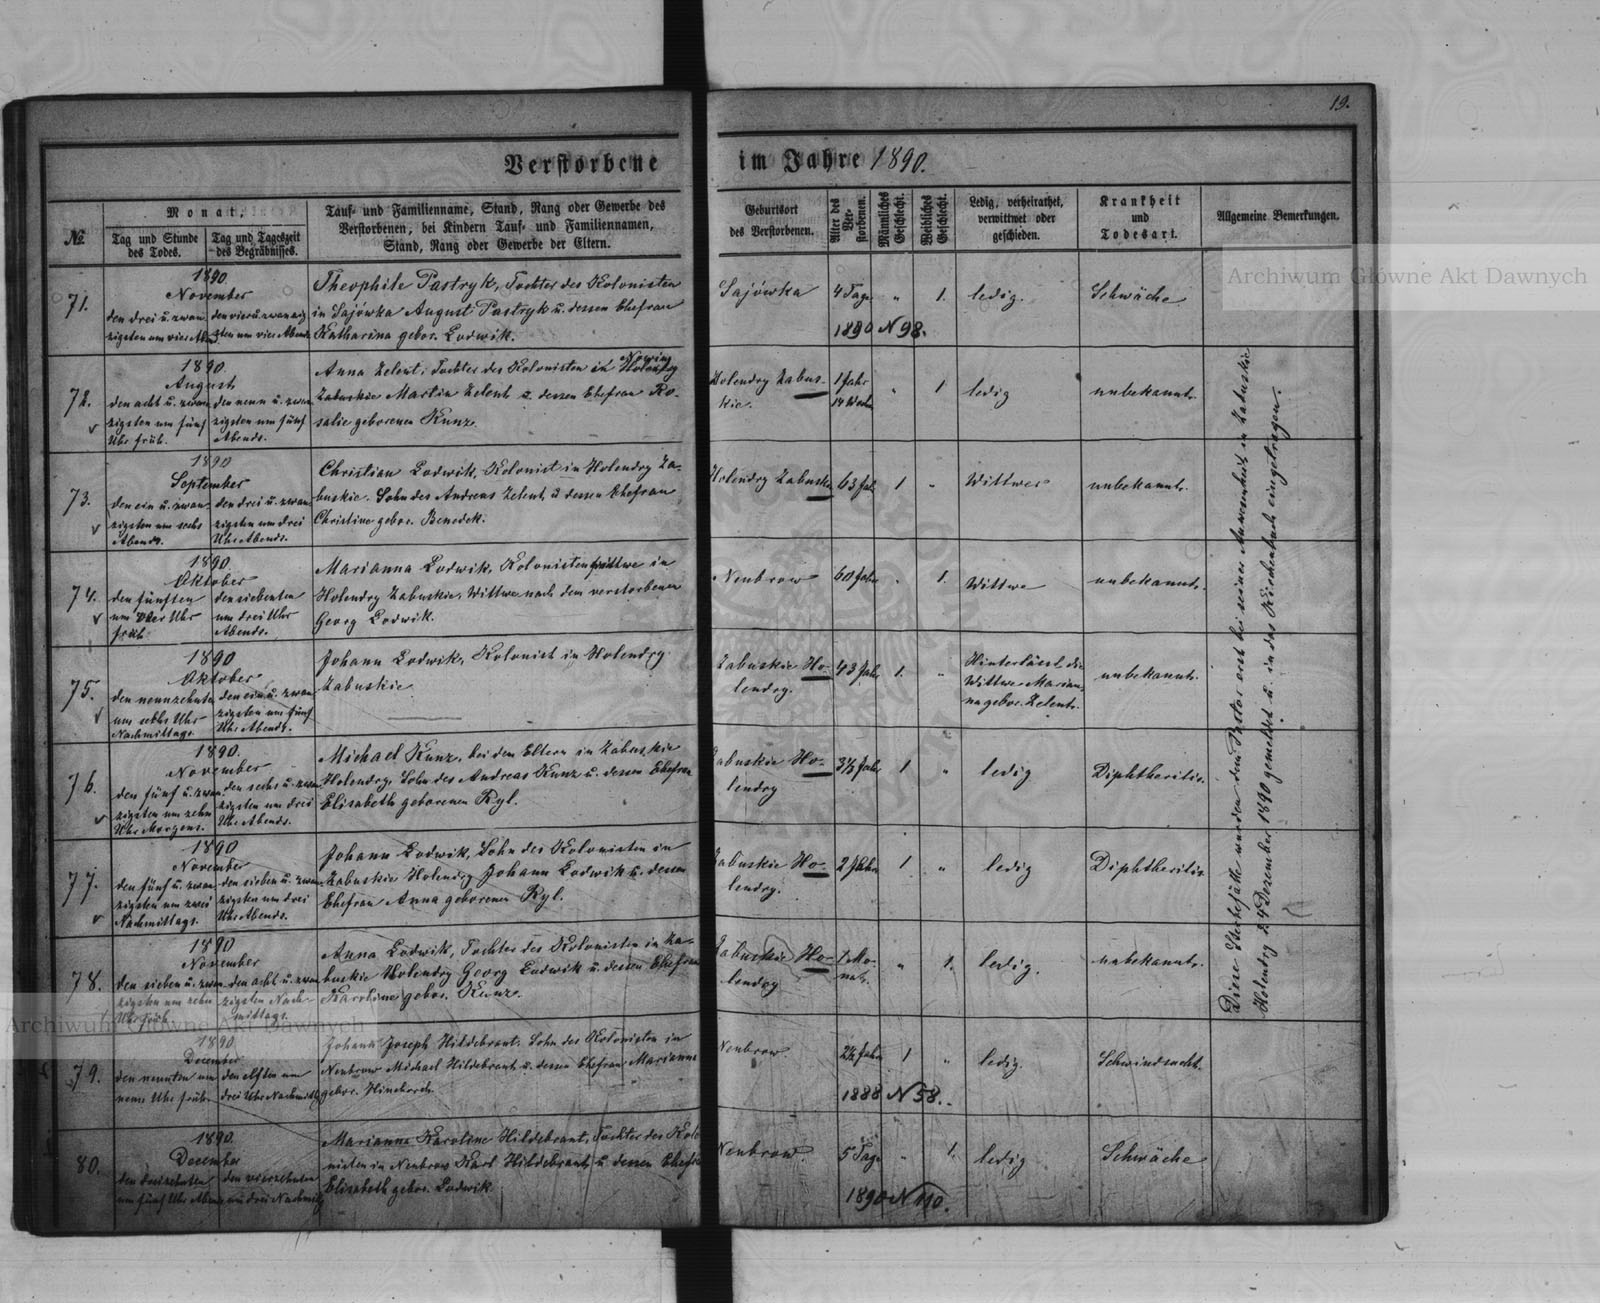 19.
Verstorbene im Jahre 1890.
No.
Monat,
Tag und Stunde des Todes.
Tag und Tageszeit des Begräbnisses.
Tauf- und Familienname, Stand, Rang oder Gewerbe des
Verstorbenen, bei Kindern Tauf- und Familiennamen,
Stand, Rang oder Gewerbe der Eltern.
Geburtsort
des Verstorbenen.
Alter des Verstorbenen.
Männliches Geschlecht.
Weibliches Geschlecht.
Ledig, verheirathet,
verwittwet oder
geschieden.
Krankheit
und
Todesart.
Allgemeine Bemerkungen.
Archiwum Główne Akt Dawnych
71.
1890.
November
den drei u. zwan-
zigsten um vier Abds
den vier u. zwanzig
sten um vier Abends
Theophile Pastryk, Tochter des Kolonisten
in Sajówka August Pastryk u. dessen Ehefrau
Katharina gebor. Lodwik.
Sajówka
4 Tage
"
1.
ledig.
Schwäche
1890 N 98.
72.
1890.
August
den acht u. zwan
zigsten um fünf
Uhr früh.
den neun u. zwan
zigsten um fünf
Abends.
Anna Zelent, Tochter des Kolonisten in Holendry
Zabuskie Martin Zelent u. dessen Ehefrau Ro-
salie geborenen Kunz.
Holendry Zabus-
kie.
1 Jahr
14 Woch.
"
1
ledig
unbekannt.
73.
1890
September
den ein u. zwan
zigsten um sechs
Abends.
den drei u. zwan
zigsten um drei
Uhr Abends.
Christian Lodwik, Kolonist in Holendry Za-
buskie. Sohn des Andreas Zelent u dessen Ehefrau
Christine gebor. Benedek.
Holendry Zabuskie
63 Jahr
1
"
Wittwer
unbekannt.
74.
1890.
Oktober
den fünften
um vier Uhr
früh
den siebenten
um drei Uhr
Abends.
Marianna Lodwik, Kolonistenwittwe in
Holendry Zabuskie, Wittwe nach dem verstorbenen
Georg Lodwik.
Neubrow
60 Jahr
"
1.
Wittwe
unbekannt.
75.
1890
Oktober
den neunzehnten
um sechs Uhr
Nachmittags
den ein u. zwan
zigsten um fünf
Uhr Abends.
Johann Lodwik, Kolonist in Holendry
Zabuskie
Zabuskie Ho-
lendry.
43 Jahr
1.
"
Hinterlässt die
Wittwe Marian-
na gebor. Zelent.
unbekannt.
76.
1890.
November
den fünf u. zwan
zigsten um zehn
Uhr Morgens.
den sechs u. zwan
zigsten um drei
Uhr Abends.
Michael Kunz, bei den Eltern in Zabuskie
Holendry, Sohn des Andreas Kunz u. dessen Ehefrau
Elisabeth geborenen Ryl.
Zabuskie Ho-
lendry
3½ Jahr
1
"
ledig
Diphtheritis.
77.
1890
November
den fünf u. zwan
zigsten um zwei
Nachmittags.
den sieben u. zwan
zigsten um drei
Uhr Abends.
Johann Lodwik, Sohn des Kolonisten in
Zabuskie Holendry Johann Lodwik u. dessen
Ehefrau Anna geborenen Ryl.
Zabuskie Ho-
lendry.
2 Jahr
1
"
ledig
Diphtheritis
78.
1890
November
den sieben u. zwan
zigsten um zehn
Uhr früh.
den acht u. zwan
zigsten Nach-
mittags.
Anna Lodwik, Tochter des Kolonisten in Za-
buskie Holendry Georg Lodwik u. dessen Ehefrau
Karoline gebor. Kunz.
Zabuskie Ho-
lendry
"
1.
ledig.
unbekannt.
Archiwum Główne Akt Dawnych
79.
1890
December
den neunten um
neun Uhr früh.
den elften um
drei Uhr Nachmittg
Johann Joseph Hildebrant, Sohn des Kolonisten in
Neubrow Michael Hildebrant u. dessen Ehefrau Marianna
gebor.
Neubrow.
2½ Jahr
1
"
ledig.
Schwindsucht.
1888 N 58.
80.
1890.
December
den dreizehnten
um fünf Uhr Abend
den vierzehnten
um drei Nachmitg
Marianna Karoline Hildebrant, Tochter des Kolo
nisten in Neubrow Karl Hildebrant u. dessen Ehefrau
Elisabeth gebor. Lodwik
Neubrow.
5 Tage
"
1.
ledig
Schwäche
1890 N 110.
Diese Sterbefälle wurden dem Pastor erst bei seiner Anwesenheit in Zabuskie
Holendry d. 4 Dezember 1890 gemeldet u. in das Kirchenbuch eingetragen.